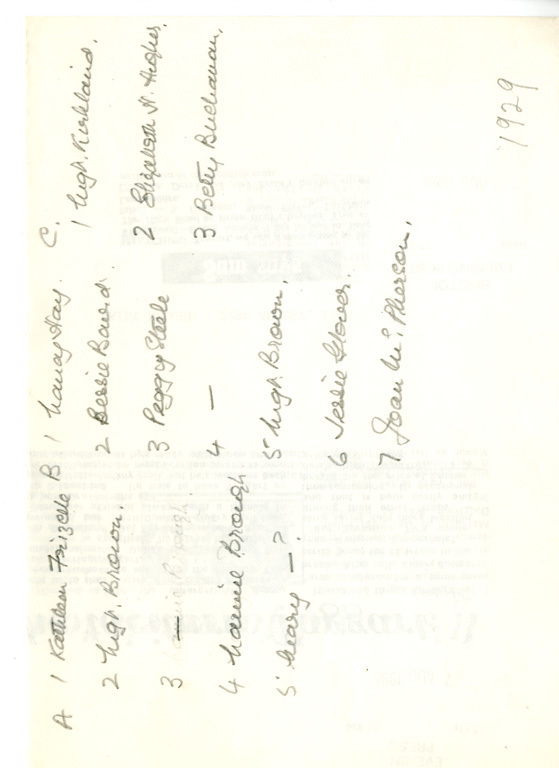 A
1 Kathleen Frizelle
2 Mgt. Brown.
3 —
4 Nannie Brough
5 — ?
B
1 Nancy Hay.
2 Bessie Baird.
3 Peggy Steele
4 —
5 Mgt. Brown.
6 Jessie Glover.
7 Joan McPherson.
C.
1 Mgt. Kirkland.
2 Elizabeth
3 Betty Buchanan.
1929